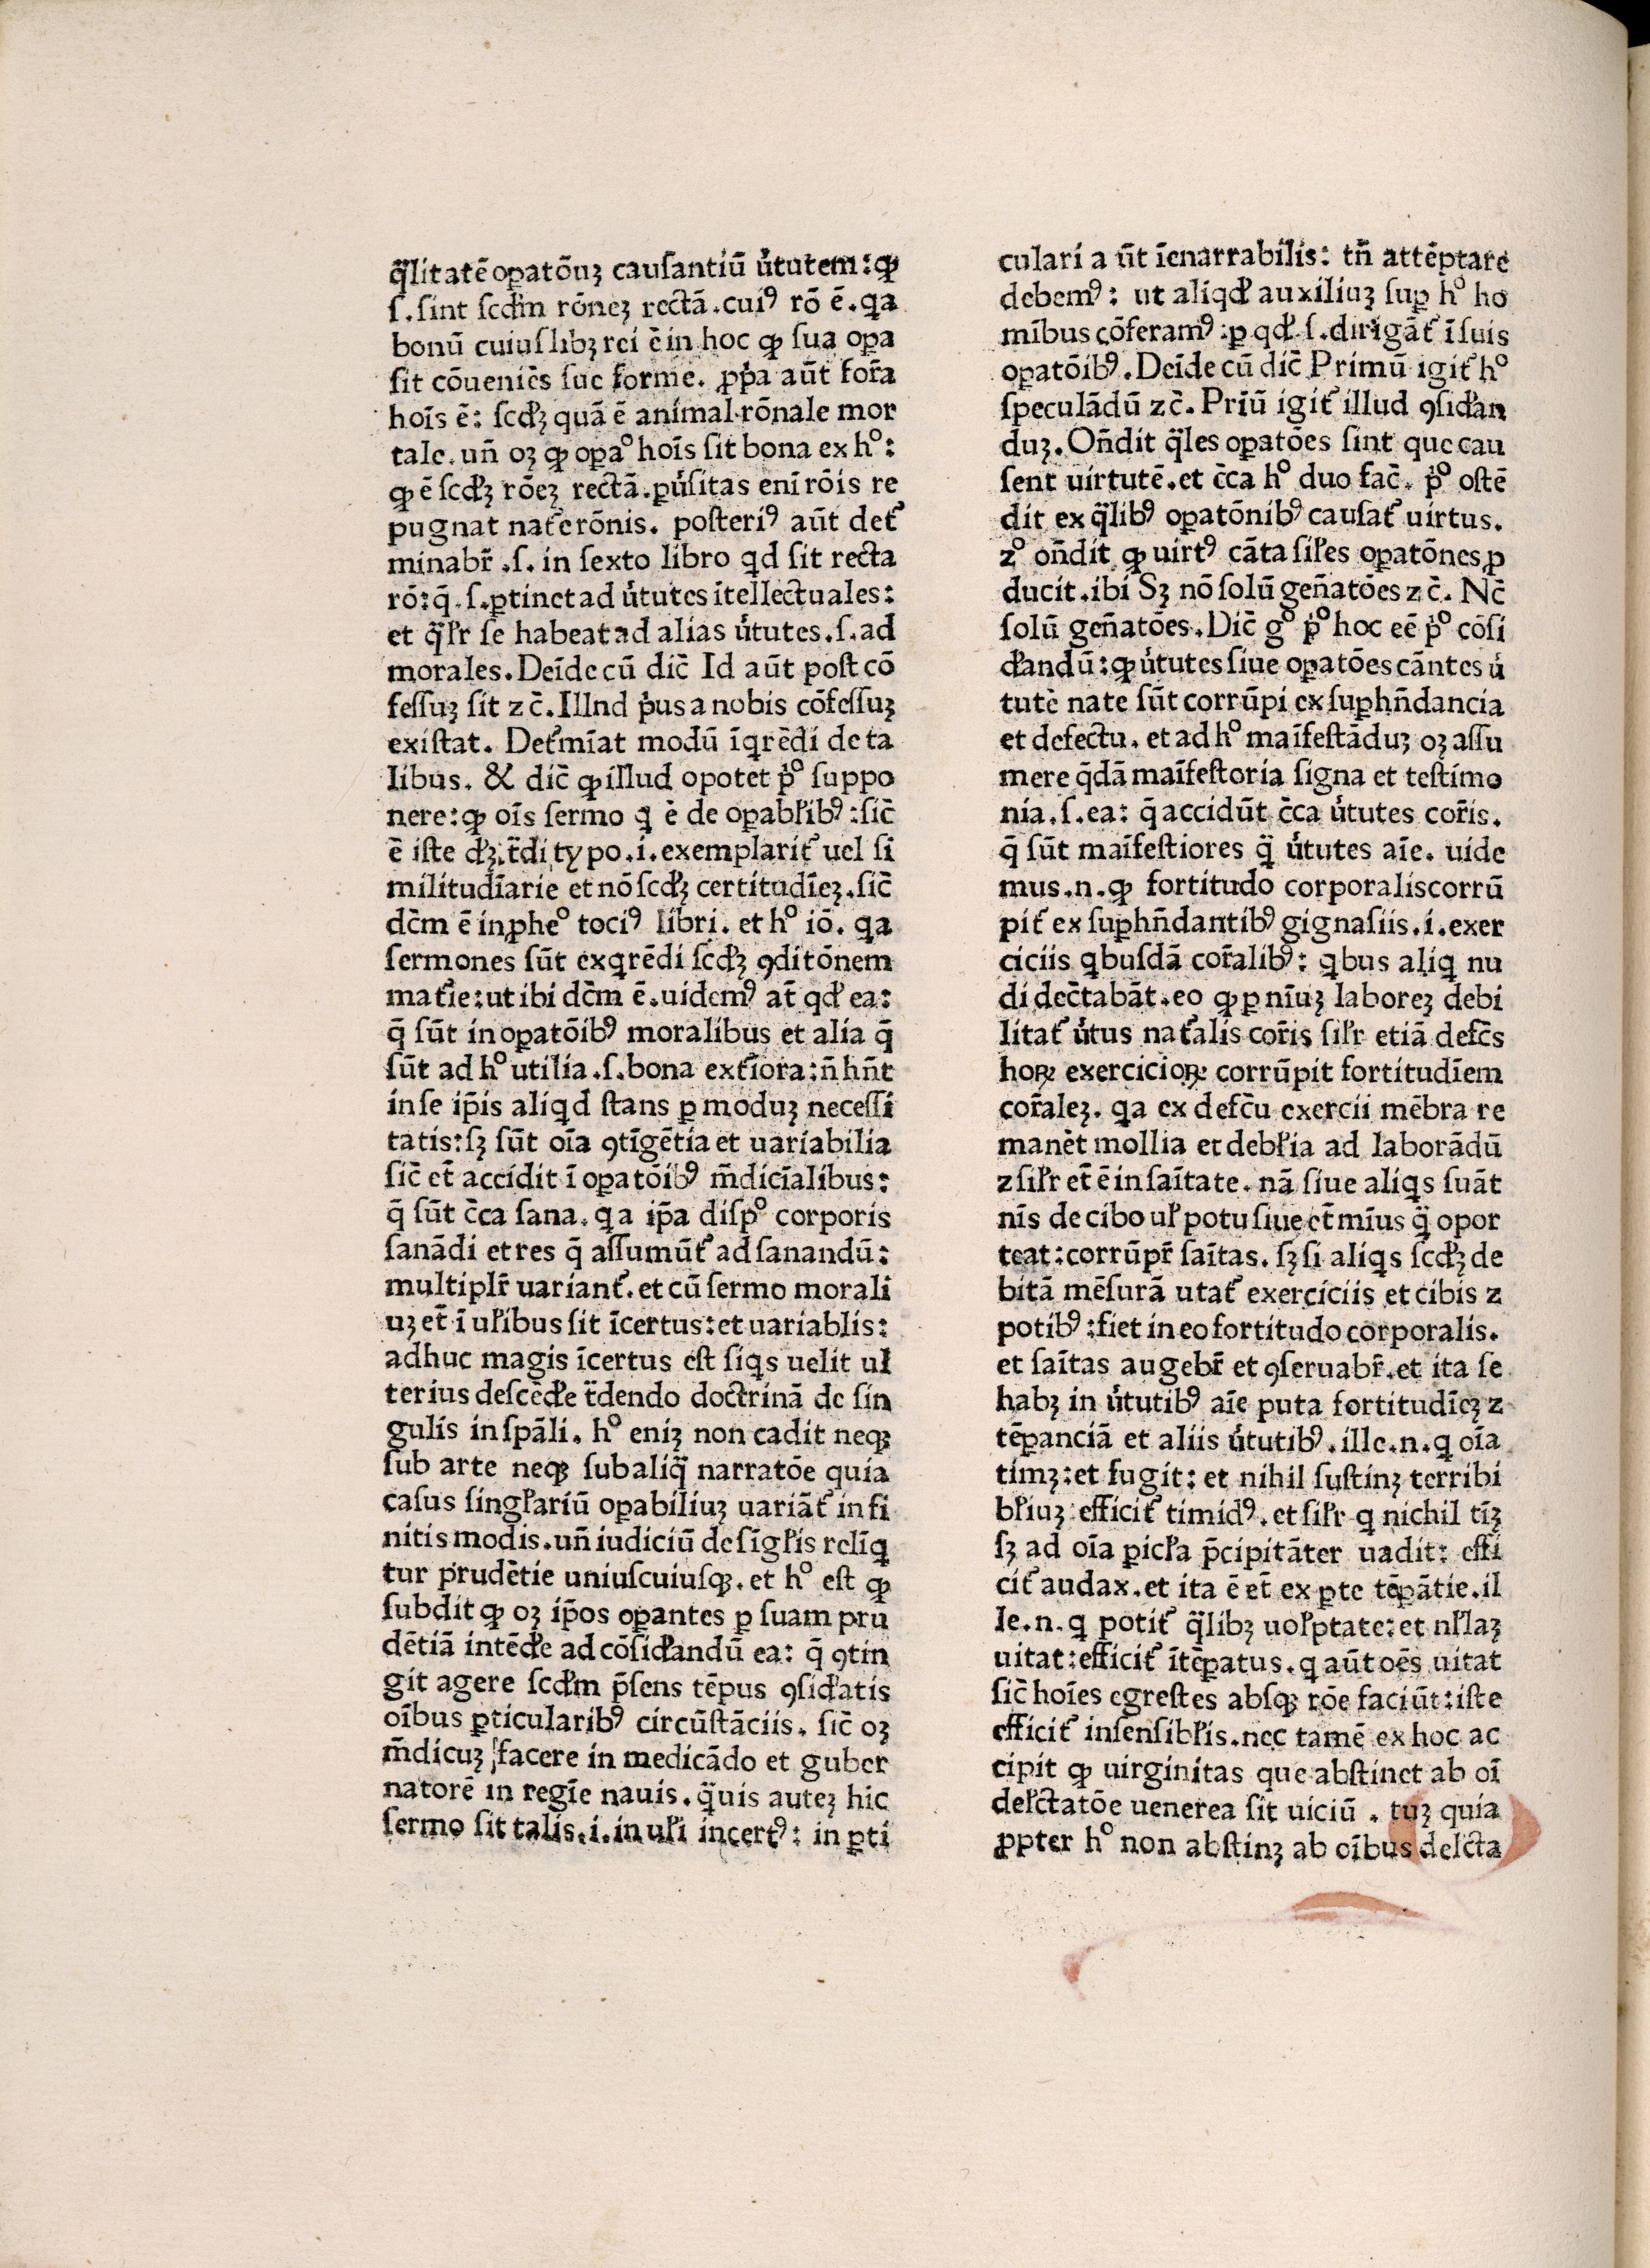 q̃litatē oꝑatōuꝫ cauſantiū u̾tutem: ꝙ
ſ. ſint ſcd̾m rōneꝫ rectā. cuiꝰ rō ē. qa
bonū cuiuſlibꝫ rei ē in hoc ꝙ ſua oꝑa
ſit cōueniēs ſue forme. ꝓp̃a aūt for̃a
hoīs ē: ſcd̾ꝫ quā ē animal rōnale mor
tale. un̄ oꝫ ꝙ oꝑaº hoīs ſit bona ex hº:
ꝙ ē ſcd̾ꝫ rōeꝫ rectā. ꝑu̾ſitas enī rōis re
pugnat nat̾e rōnis. poſteriꝰ aūt det̾
minabr̃ .ſ. in ſexto libro qd ſit recta
rō: q̄. ſ. ꝑtinet ad u̾tutes ītellectuales:
et q̃lr̃ ſe habeat ad alias u̾tutes. ſ. ad
morales. Deīde cū dic̄ Id aūt poſt cō
feſſuꝫ ſit ⁊ c̄. Illnd p̾us a nobis cōfeſſuꝫ
exiſtat. Det̾mīat modū īqrēdi de ta
libus. & dic̄ ꝙ illud opotet p̾º ſuppo
nere: ꝙ oīs ſermo q ē de oꝑabl̾ibꝰ: ſic̄
ē iſte dꝫ. t̃di tẏpo. i. exemplarit̾ uel ſi
militudīarie et nō ſcd̾ꝫ certitudīeꝫ. ſic̄
dc̄m ē in ꝓheº tociꝰ libri. et hº iō. qa
ſermones ſūt exqrēdi ſcd̾ꝫ ꝯditōnem
mat̾ie: ut ibi dc̄m ē. uidemꝰ at̄ qd̾ ea:
q̄ ſūt in oꝑatōibꝰ moralibus et alia q̄
ſūt ad hº utilia. ſ. bona ext̾iora: n̄ hn̄t
in ſe ip̄is aliqd ſtans ꝑ moduꝫ neceſſi
tatis: ſꝫ ſūt oīa ꝯtīgētia et uariabilia
ſic̄ et̄ accidit ī oꝑatōibꝰ m̄dicīalibus:
q̄ ſūt c̄ca ſana. qa ip̄a diſpº corporis
ſanādi et res q̄ aſſumūt̾ ad ſanandū:
multiplr̃ uariant̾. et cū ſermo morali
uꝫ et̄ ī ul̾ibus ſit īcertus: et uariablis:
adhuc magis īcertus eſt ſiqs uelit ul
terius deſcēd̾e t̃dendo doctrinā de ſin
gulis in ſpāli. hº eniꝫ non cadit neqꝫ
ſub arte neqꝫ ſub aliq̃ narratōe quia
caſus ſingl̾ariū oꝑabiliuꝫ uariāt̾ infi
nitis modis. un̄ iudiciū de ſīgl̾is relīq
tur prudētie uniuſcuiuſqꝫ. et hº eſt ꝙ
ſubdit ꝙ oꝫ ip̄os oꝑantes ꝑ ſuam pru
dētiā intēd̾e ad cōſid̾andū ea: q̄ ꝯtin
git agere ſcd̾m p̄ſens tēpus ꝯſid̾atis
oībus ꝑticularibꝰ circūſtāciis. ſic̄ oꝫ
m̄dicuꝫ facere in medicādo et guber
natorē in regīe nauis. q̃uis auteꝫ hic
ſermo ſit talis. i. in ul̾i incertꝰ: in ꝑti
culari aūt īenarrabilis: tn̄ attēptare
debemꝰ: ut aliqd̾ auxiliuꝫ ſuꝑ hº ho
mībus cōferamꝰ: ꝑ qd̾ ſ. dirigāt̾ ī ſuis
oꝑatōibꝰ. Deīde cū dic̄ Primū igit̾ hº
ſpeculādū ⁊ c̄. Priū igit̾ illud ꝯſid̾an
duꝫ. On̄dit q̃les oꝑatōes ſint que cau
ſent uirtutē. et c̄ca hº duo fac̄. p̾º oſtē
dit ex q̃libꝰ oꝑatōnibꝰ cauſat̾ uirtus.
2º on̄dit ꝙ uirtꝰ cāta ſil̾es oꝑatōnes ꝓ
ducit. ibi Sꝫ nō ſolū gen̄atōes ⁊ c̄. Nc̄
ſolū gen̄atōes. Dic̄ gº p̾º hoc eē p̾º cōſi
d̾andū: ꝙ u̾tutes ſiue oꝑatōes cāntes u̾
tutē nate ſūt corrūpi ex ſuꝑhn̄dancia
et defectu. et ad hº maīfeſtāduꝫ oꝫ aſſu
mere q̄dā maīfeſtoria ſigna et teſtimo
nia. ſ. ea: q̄ accidūt c̄ca u̾tutes cor̃is.
q̄ ſūt maīfeſtiores q̃ u̾tutes aīe. uide
mus. n. ꝙ fortitudo corporaliscorrū
pit̾ ex ſuꝑhn̄dantibꝰ gignaſiis. i. exer
ciciis qbuſdā cor̃alibꝰ: qbus aliq nu
di dec̄tabāt. eo ꝙ ꝑ nīuꝫ laboreꝫ debi
litat̾ u̾tus nat̾alis cor̃is ſil̾r etiā defc̄s
hoꝝ exercicioꝝ corrūpit fortitudīem
cor̃aleꝫ. qa ex defc̄u exercii mēbra re
manēt mollia et debl̾ia ad laborādū
⁊ ſil̾r et̄ ē in ſaītate. nā ſiue aliqs ſuāt
nīs de cibo ul̾ potu ſiue et̄ mīus q̃ opor
teat: corrūpr̃ ſaītas. ſꝫ ſi aliqs ſcd̾ꝫ de
bitā mēſurā utat̾ exerciciis et cibis ⁊
potibꝰ: fiet in eo fortitudo corporalis.
et ſaītas augebr̃ et ꝯſeruabr̃. et ita ſe
habꝫ in u̾tutibꝰ aīe puta fortitudīeꝫ ⁊
tēꝑanciā et aliis u̾tutibꝰ. ille. n. q oīa
timꝫ: et fugit: et nihil ſuſtinꝫ terribi
bl̾iuꝫ efficit̾ timidꝰ. et ſil̾r q nichil tīꝫ
ſꝫ ad oīa ꝑicl̾a p̄cipitāter uadit: effi
cit̾ audax. et ita ē et̄ ex ꝑte tēꝑātie. il
le. n. q potit̾ q̃libꝫ uol̾ptate: et nl̾laꝫ
uitat: efficit̾ ītēꝑatus. q aūt oēs uitat
ſic̄ hoīes egreſtes abſqꝫ rōe faciūt: iſte
efficit̾ inſenſibl̾is. nec tamē ex hoc ac
cipit ꝙ uirginitas que abſtinet ab oī
del̾ctatōe uenerea ſit uiciū. tuꝫ quia
ꝓpter hº non abſtinꝫ ab oībus del̾cta